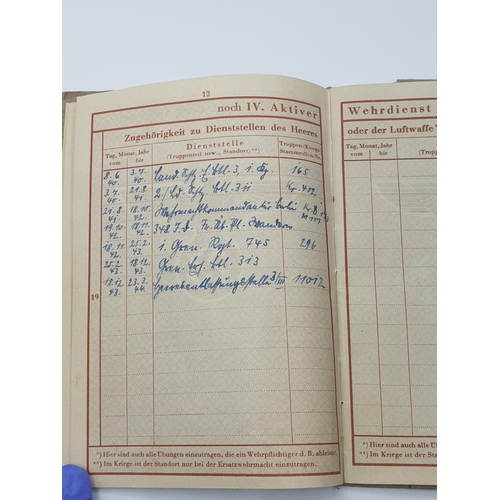 12
noch IV. Aktiver
Zugehörigkeit zu Dienststellen des Heeres
Tag, Monat, Jahr
vom bis
Dienststelle
(Truppenteil usw., Standort) **)
Truppen-(Kriegs-)
Stammrollen-Nr.
8.6. 40. 3.7. 40. Land. Schtz. E. Btl. 3, 1. Kp. 165
3.7. 40. 21.8. 41. 2./Ld. Schtz. Btl. 311
21.8. 41. 18.10. 42. Wehrmachtkommandantur Berlin
19.10. 42. 18.11. 42.
18.11. 42. 25.2. 43. 1. Gren. Rgt. 745 296
25.2. 43. 18.12. 43. Gren. Ers. Btl. 313
19
18.12. 43. 23.3. 44. Heeresentlassungsstelle 3/III 11012
*) Hier sind auch alle Übungen einzutragen, die ein Wehrpflichtiger d. B. ableistet.
**) Im Kriege ist der Standort nur bei der Ersatzwehrmacht einzutragen.
Wehrdienst
oder der Luftwaffe
Tag, Monat, Jahr
vom bis
*) Hier sind auch alle Übungen
**) Im Kriege ist der Standort